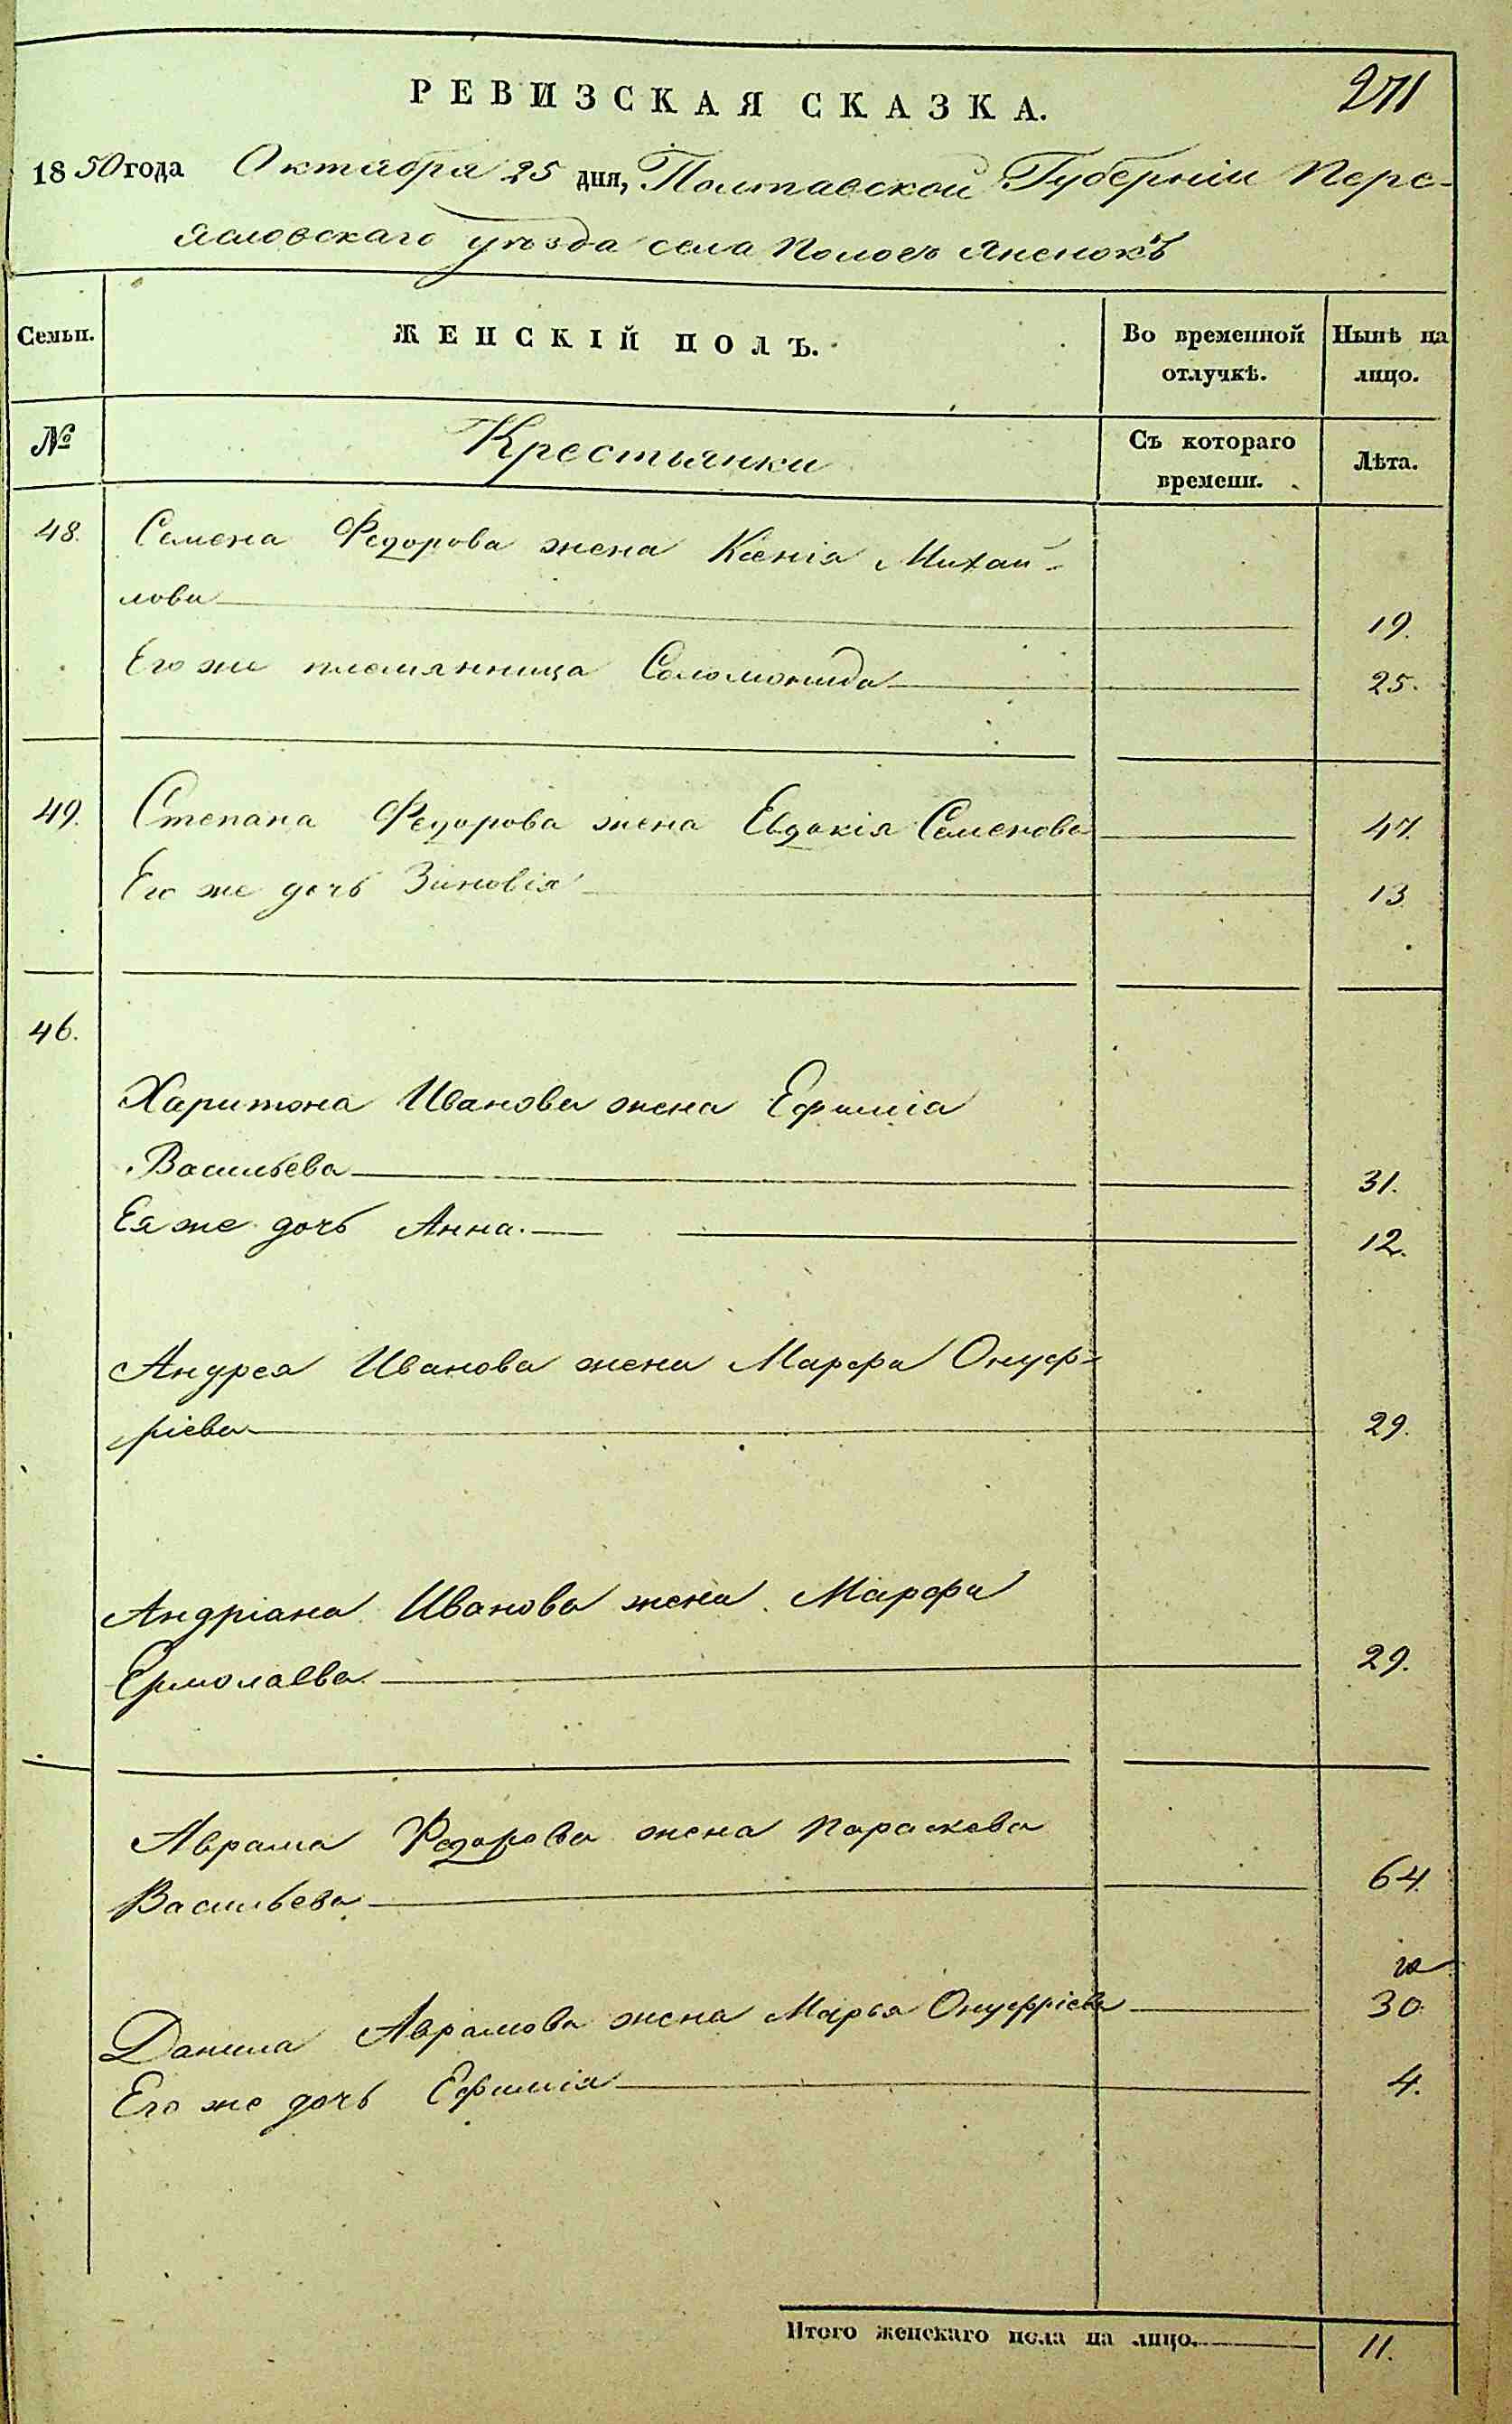 271
РЕВИЗСКАЯ СКАЗКА.
1850 года Октября 25 дня, Полтавской Губерніи Пере-
яславскаго уѣзда села Пологъ Яненокъ
Семьи. ЖЕНСКІЙ ПОЛЪ. Во временной отлучкѣ. Нынѣ на лицо.
№ Крестьянки Съ котораго времени. Лѣта.
48. Семена Федорова жена Ксенія Михай-
лова 19.
Его же племянница Соломонида 25.
49. Степана Федорова жена Евдокія Семенова 47.
Его же дочь Зиновія 13
46.
Харитона Иванова жена Ефимія
Васильева 31.
Ея же дочь Анна. 12.
Андрея Иванова жена Марфа Онуф-
ріева 29.
Андріана Иванова жена Марфа
Ермолаева 29.
Аврама Федорова жена Параскева
Васильева 64
Данила Аврамова жена Марья Онуфріева 30
Его же дочь Ефимія 4.
Итого женскаго пола на лицо. 11.